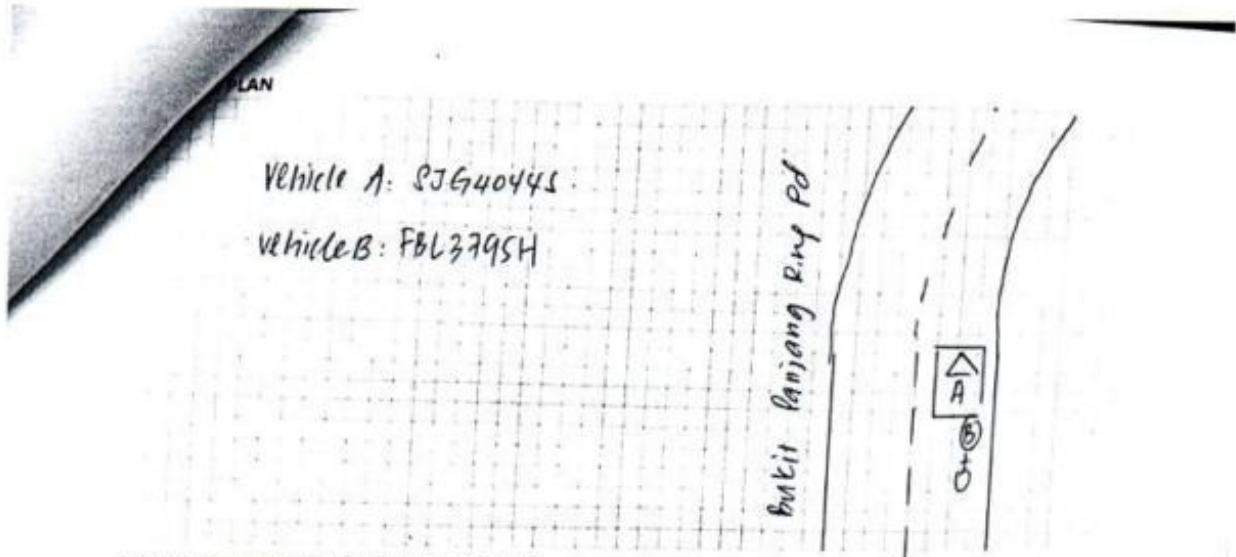 PLAN
Vehicle A: SJG4044S
Vehicle B: FBL3795H
Bukit Panjang Ring Rd
A
B